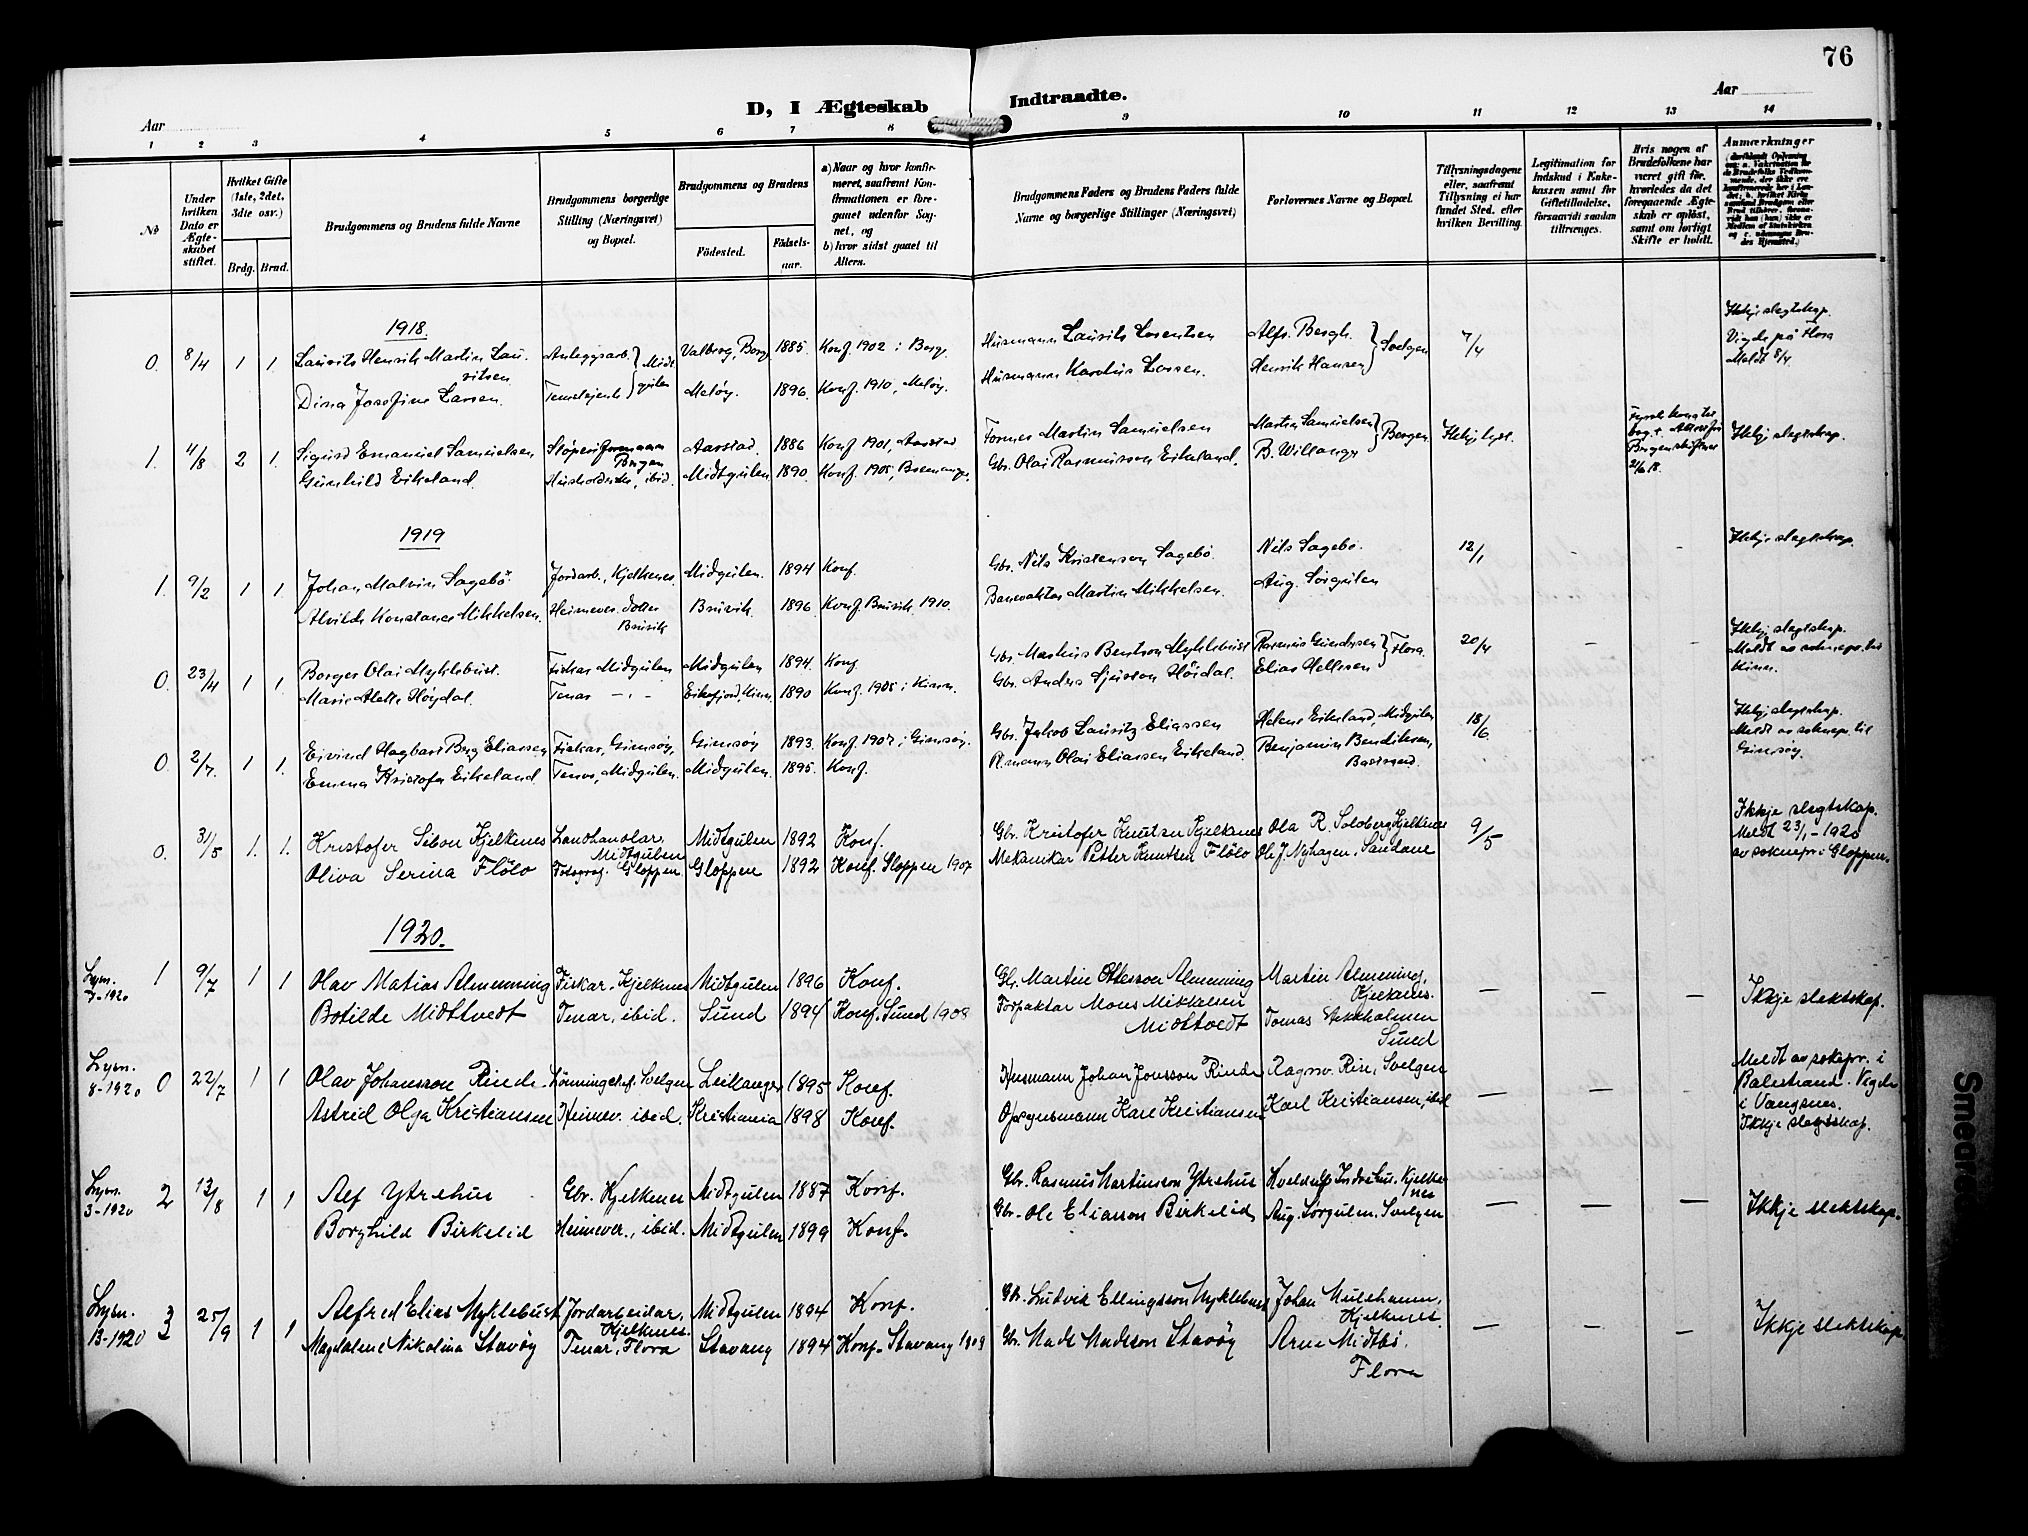 76
D, I Ægteskab Indtraadte.
Aar
Aar
1 2 3 4 5 6 7 8 9 10 11 12 13 14
No
Under hvilken Dato er Ægteskabet stiftet.
Hvilket Gifte (1ste, 2det, 3dte osv.)
Brdg. Brud.
Brudgommens og Brudens fulde Navne
Brudgommens borgerlige Stilling (Næringsvei) og Bopæl.
Brudgommens og Brudens
Fødested.
Fødselsaar.
a) Naar og hvor konfirmeret, saafremt Konfirmationen er foregaaet udenfor Sognet, og
b) hvor sidst gaaet til Alters.
Brudgommens Faders og Brudens Faders fulde Navne og borgerlige Stillinger (Næringsvei)
Forlovernes Navne og Bopæl.
Tillysningsdagene eller, saafremt Tillysning ei har fundet Sted, efter hvilken Bevilling.
Legitimation for Indskud i Enkekassen samt for Giftetilladelse, forsaavidt saadan tiltrænges.
Hvis nogen af Brudefolkene har været gift før, hvorledes da det foregaaende Ægteskab er opløst, samt om lovligt Skifte er holdt.
Anmærkninger
1918.
0. 8/4 1 1. Laurits Henrik Martin Lauritsen Anleggsarb. Midtgulen Valberg, Borg 1885. Konf. 1902 i Borg. Husmann Laurits Lorentsen Alfr. Bergh. Svelgen 7/4 Ikkje slegtskap. Vigde på Flora Meldt 8/4
Dina Josefine Larsen. Meløy. 1896. Konf. 1910, Meløy. Husmann Karolius Larsen. Henrik Hansen
1. 4/8 2 1. Sigurd Emanuel Samuelsen Støperiformann Bergen Aarstad 1886 Konf 1901, Aarstad Former Martin Samuelsen Martin Samuelsen Bergen Ikkje lyst. Ikkje slegtskap.
Gunhild Eikeland. ibid. Midtgulen 1890. Konf. 1905, Bremanger. Gbr. Olai Rasmusson Eikeland. B. Willanger
1919
1. 9/2 1 1. Johan Malvin Sagebø. Jordarb., Kjelkenes. Midgulen. 1894 Konf. Gbr. Nils Kristenson Sagebø. Nils Sagebø. 12/1 - - Ikkje slegtskap.
Alvilde Konstanse Mikkelsen. Heimever. dotter Bruvik Bruvik 1896 Konf. Bruvik 1910. Banevakter Martin Mikkelsen. Aug. Sørgulen
0. 23/4 1 1. Borger Olai Myklebust. Fiskar Midgulen Midgulen 1894. Konf Gbr. Markus Bentson Myklebust Rasmus Gundersen Flora. 20/4 - - Ikkje slegtskap. Meldt av soknepr. til Kinn.
Marie Alette Høydal. Tenar -,- Eikefjord, Kinn. 1890 Konf. 1905 i Kinn. Gbr. Anders Sjursson Høidal. Elias Hellesen
0. 2/7. 1 1. Eivind Hagbart Berg Eliassen Fiskar, Gimsøy. Gimsøy 1893. Konf. 1907 i Gimsøy. Gbr. Jakob Lauritz Eliassen Helene Eikeland, Midgulen 18/6. Ikkje slegtskap. Meldt av soknepr. til Gimsøy.
Emma Kristofa Eikeland. Tenar, Midgulen. Midgulen. 1895. Konf. Olai Eliassen Eikeland. Benjamin Bendiksen,
0. 31/5 1. 1. Kristofer Sibon Kjelkenes Landhandlar, Midtgulen Midtgulen 1892 Konf. Gbr. Kristofer Knutsen Kjelkenes Ola R. Solberg, Kjelkenes 9/5 Ikkje slegtskap. Meldt 23/1-1920 av soknepr. i Gloppen.
Oliva Serina Fløló Fotograf. Gloppen Gloppen 1892 Konf. Gloppen 1907 Mekanikar Petter Knutsen Fløló Ole J. Nyhagen, Sandane
1920.
Lysn. 7-1920 1 9/7 1 1 Olav Matias Almenning Fiskar, Kjelkenes Midtgulen 1896 Konf. Gbr. Martin Ottesson Almenning Martin Almenning, Kjelkenes. - - - Ikkje slektskap.
Botilde Midttvedt Tenar, ibid. Sund 1894 Konf. Sund 1908 Forpaktar Mons Mikkalsen Midttvedt Tomas Sekkholmen Sund
Lysn. 8-1920 0 22/7 1 1 Olav Johansson Rinde Svelgen Leikanger 1895 Konf. Husmann Johan Jonsson Rinde Ragnv. Rise, Svelgen - - - Meldt av sokepr. i Balestrand. Vigde i Vangsnes. Ikkje slegsskap.
Astrid Olga Kristiansen Heimev. ibid. Kristiania 1898 Konf. Opsynsmann Karl Kristiansen Karl Kristiansen, ibid
Lysn. 3-1920 2 13/8 1 1 Alf Ytrehus Gbr. Kjelkenes Midtgulen 1887 Konf. Gbr. Rasmus Martinson Ytrehus Kveldulf Indrehus, Kjelkenes - - - Ikkje slektskap.
Borghild Birkelid Heimever., ibid. Midtgulen 1899 Konf. Gbr. Ole Eliasson Birkelid, Aug. Sørgulen, Svelgen
Lysn. 13-1920 3 25/9 1 1 Alfred Elias Myklebust Jordarbeidar, Kjelkenes. Midtgulen 1894 Konf. Gbr. Ludvik Ellingsson Myklebust Johan Mulehamn, Kjelkenes. - - - Ikkje slektskap.
Magdalene Nikolina Stavøy Tenar, Flora Stavang 1894 Konf. Stavang 1909 Gbr. Mads Madsson Stavøy Arne Midtbø, Flora